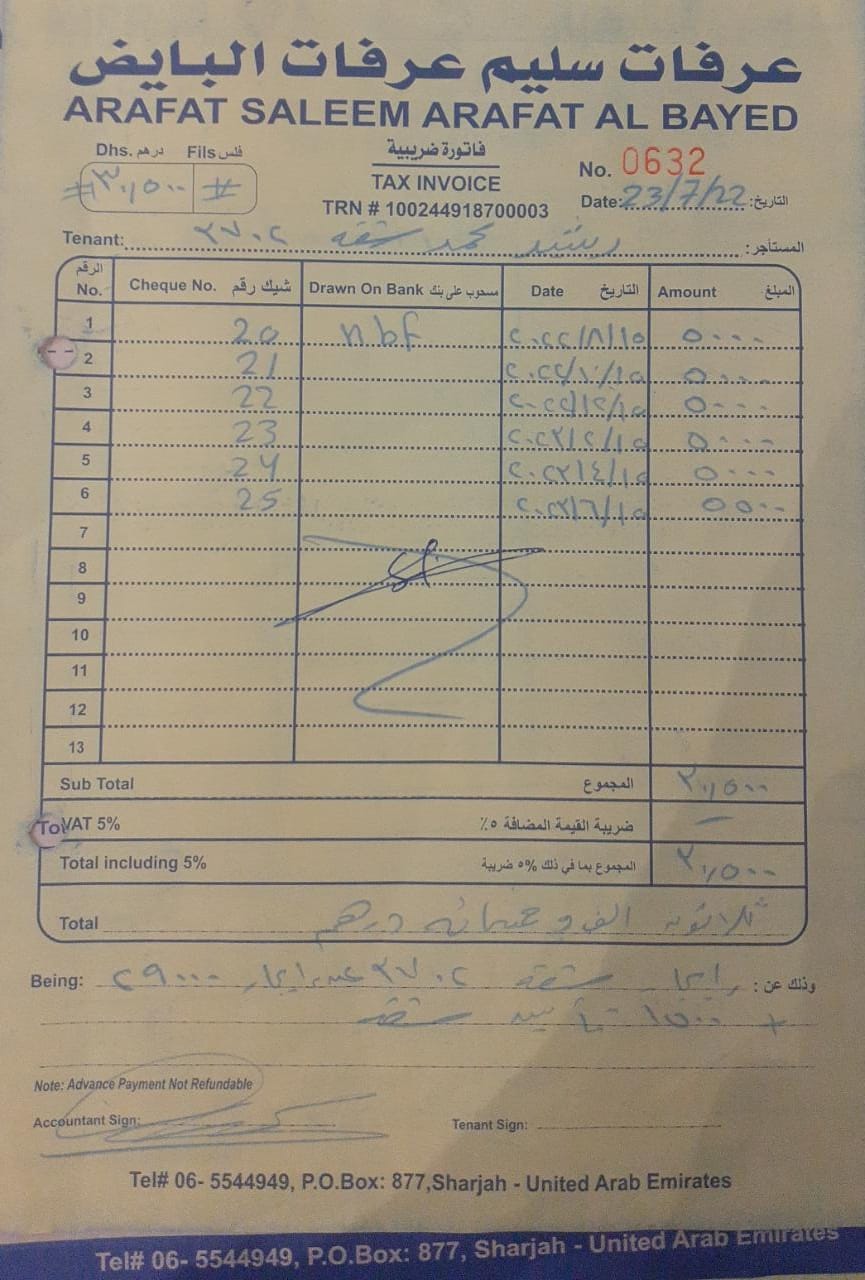 عرفات سليم عرفات البايض
ARAFAT SALEEM ARAFAT AL BAYED
Dhs. درهم Fils فلس
# ٣٠,٥٠٠ #
فاتورة ضريبية
TAX INVOICE
TRN # 100244918700003
No. 0632
Date: 23/7/22 التاريخ:
Tenant: محمد شقة ٢٧٠٢ المستأجر:
الرقم No. Cheque No. شيك رقم Drawn On Bank مسحوب على بنك Date التاريخ Amount المبلغ
1 20 nbf ٢٠٢٢/٨/١٥ ٥٠٠٠
2 21 ٢٠٢٢/١٠/١٥ ٥٠٠٠
3 22 ٢٠٢٢/١٢/١٥ ٥٠٠٠
4 23 ٢٠٢٣/٢/١٥ ٥٠٠٠
5 24 ٢٠٢٣/٤/١٥ ٥٠٠٠
6 25 ٢٠٢٣/٦/١٥ ٥٥٠٠
7
8
9
10
11
12
13
Sub Total المجموع ٣٠,٥٠٠
VAT 5% ضريبة القيمة المضافة ٥٪ –
Total including 5% المجموع بما في ذلك 5% ضريبة ٣٠,٥٠٠
Total ثلاثون الف و خمسمائة درهم
Being: ايجار شقة ٢٧٠٢ ايجار ٢٩٠٠٠ وذلك عن:
+ ١٥٠٠ تأمين شقة
Note: Advance Payment Not Refundable
Accountant Sign: Tenant Sign:
Tel# 06- 5544949, P.O.Box: 877,Sharjah - United Arab Emirates
Tel# 06- 5544949, P.O.Box: 877, Sharjah - United Arab Emirates